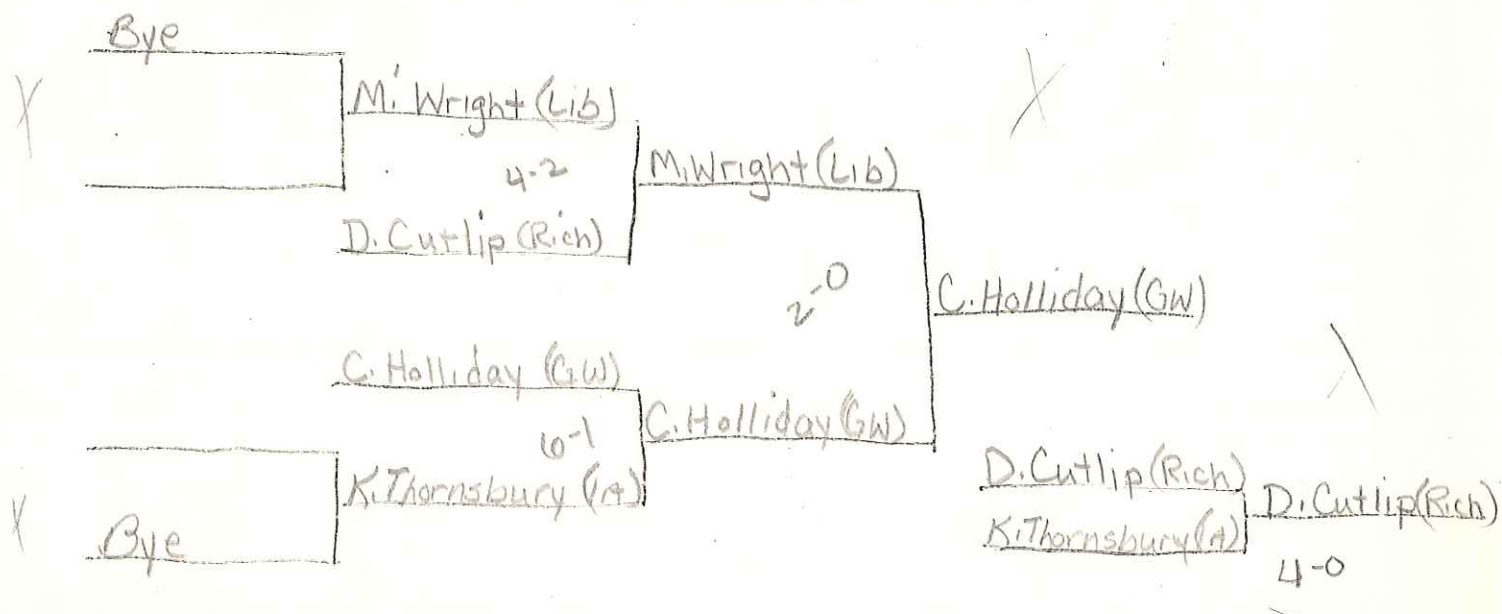 Bye
M. Wright (Lib)
4-2
D. Cutlip (Rich)
M. Wright (Lib)
C. Holliday (GW)
6-1
K. Thornsbury (A)
Bye
C. Holliday (GW)
2-0
C. Holliday (GW)
D. Cutlip (Rich)
K. Thornsbury (A)
D. Cutlip (Rich)
4-0